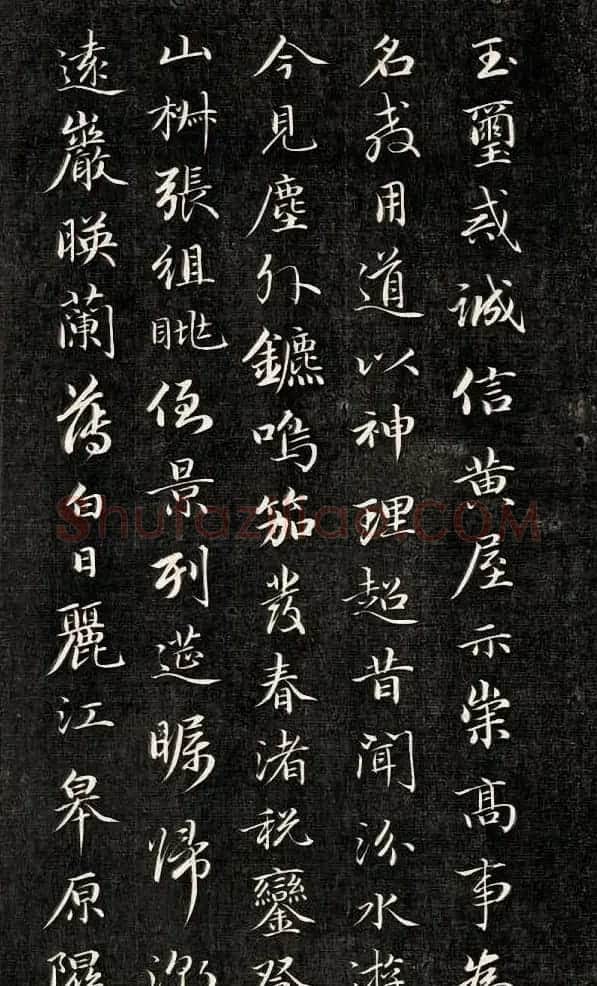 玉璽戒誠信黃屋示崇高事為
名教用道以神理超昔聞汾水游
今見塵外鑣鳴笳發春渚稅鑾登
山椒張組眺倒景列筵矚歸潮
遠巖暎蘭薄白日麗江皋原隰
Shufaziliao.COM